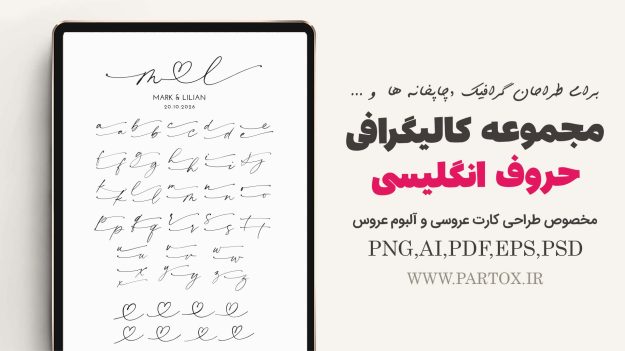 m l
MARK & LILIAN
20.10.2026
a a b b c c d d e e
f f g g h h i i j j
k k l l m m n n o o
p p q q r r s s t t
u u v v w w
x x y y z z
برای طراحان گرافیک ,چاپخانه ها و ...
مجموعه کالیگرافی
حروف انگلیسی
مخصوص طراحی کارت عروسی و آلبوم عروس
PNG,AI,PDF,EPS,PSD
WWW.PARTOX.IR